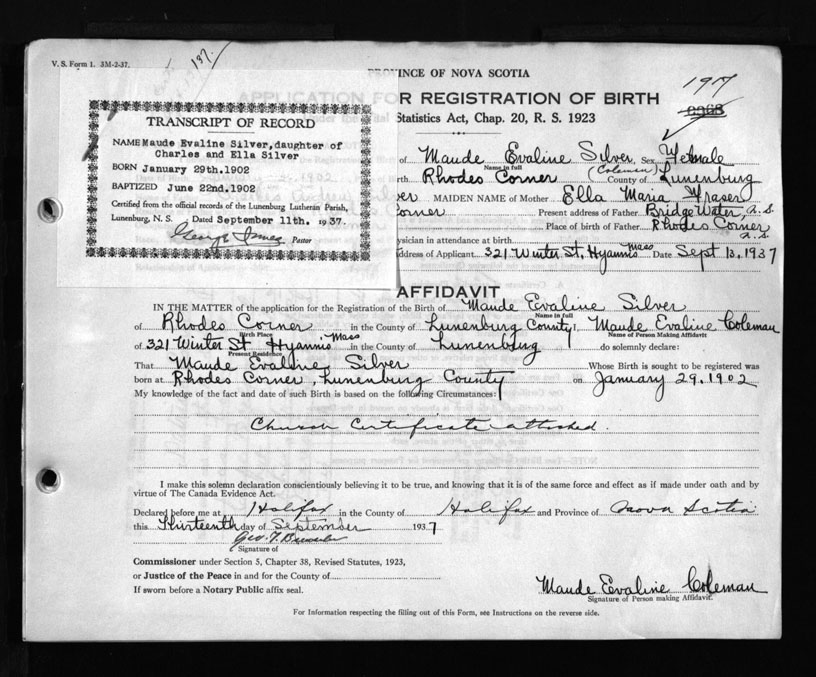 V. S. Form 1. 3M-2-37.
137.
PROVINCE OF NOVA SCOTIA
1917
APPLICATION FOR REGISTRATION OF BIRTH
Statistics Act, Chap. 20, R. S. 1923
TRANSCRIPT OF RECORD
NAME Maude Evaline Silver, daughter of
Charles and Ella Silver
BORN January 29th.1902
BAPTIZED June 22nd.1902
Certified from the official records of the Lunenburg Lutheran Parish,
Lunenburg, N. S. Dated September 11th. 1937.
Pastor
of Maude Evaline Silver, Sex Female
Name in full (Coleman)
Rhodes Corner County of Lunenburg
ver MAIDEN NAME of Mother Ella Maria Fraser
Corner Present address of Father Bridge Water, N.S.
Place of birth of Father Rhodes Corner N.S.
ysician in attendance at birth
ddress of Applicant 321 Winter St. Hyannis Mass Date Sept 13, 1937
AFFIDAVIT
IN THE MATTER of the application for the Registration of the Birth of Maude Evaline Silver
Name in full
of Rhodes Corner in the County of Lunenburg County I, Maude Evaline Coleman
Birth Place Name of Person Making Affidavit
of 321 Winter St Hyannis Mass in the County of Lunenburg do solemnly declare:
Present Residence
That Maude Evaline Silver Whose Birth is sought to be registered was
born at Rhodes Corner, Lunenburg County on January 29, 1902
My knowledge of the fact and date of such Birth is based on the following Circumstances:
Church Certificate attached.
I make this solemn declaration conscientiously believing it to be true, and knowing that it is of the same force and effect as if made under oath and by
virtue of The Canada Evidence Act.
Declared before me at Halifax in the County of Halifax and Province of Nova Scotia
this Thirteenth day of September 1937
Geo. F.
Signature of
Commissioner under Section 5, Chapter 38, Revised Statutes, 1923,
or Justice of the Peace in and for the County of
If sworn before a Notary Public affix seal.
Maude Evaline Coleman
Signature of Person making Affidavit.
For Information respecting the filling out of this Form, see Instructions on the reverse side.